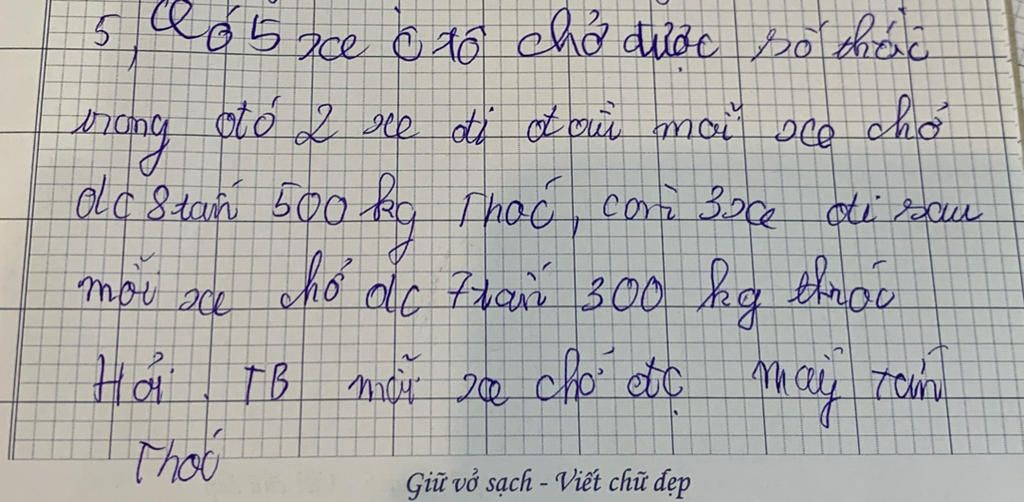 5, Có 5 xe ô tô chở được số thóc
trong đó 2 xe đi đầu mỗi xe chở
đc 8 tấn 500 kg Thóc, còn 3 xe đi sau
mỗi xe chở đc 7 tấn 300 kg thóc
Hỏi TB mỗi xe chở đc mấy tấn
Thóc
Giữ vở sạch - Viết chữ đẹp